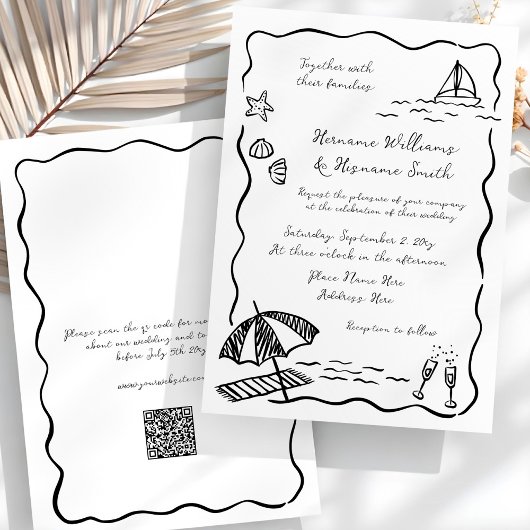 Together with
their families
Hername Williams
& Hisname Smith
Request the pleasure of your company
at the celebration of their wedding
Saturday, September 2, 20xy
At three o'clock in the afternoon
Place Name Here
Address Here
Reception to follow
Please scan the qr code for
about our wedding and to
before July 5th 20
www.yourwebsite.co